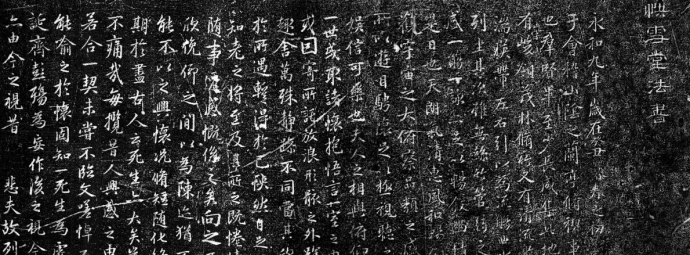 堂法書
永和九年歲在癸丑暮春之初
于會稽山陰之蘭亭脩禊事
也羣賢畢至少長咸集此地
有崇領茂林脩竹又有清流
湍暎帶左右引以為流觴曲水
列坐其次雖無絲竹管弦之
盛一觴一詠亦足以暢敘幽情
是日也天朗氣清惠風和暢
觀宇宙之大俯察品類之盛
所以遊目騁懷足以極視聽之
娛信可樂也夫人之相與俯仰
一世或取諸懷抱悟言一室之內
或因寄所託放浪形骸之外雖
趣舍萬殊靜躁不同當其欣
於所遇暫得於己快然自足
知老之將至及其所之既惓情
隨事遷感慨係之矣向之所
欣俛仰之間以為陳迹猶不
能不以之興懷況脩短隨化終
期於盡古人云死生亦大矣豈
不痛哉每攬昔人興感之由
若合一契未嘗不臨文嗟悼不
能喻之於懷固知一死生為虛
誕齊彭殤為妄作後之視今
亦由今之視昔 悲夫故列